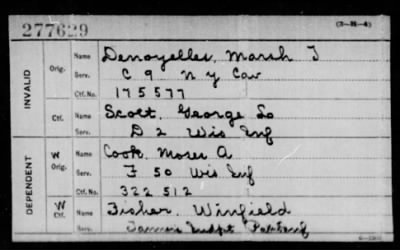 277629 (3-M-4)
INVALID
Orig. Name Denoyelles, Marsh J
Serv. C 9 N Y Cav
Ctf. No. 175577
Ctf. Name Scott, George
Serv. D 2 Wis Inf
DEPENDENT
W Orig. Name Cook, Moses A
Serv. F 50 Wis Inf
Ctf. No. 322512
W Ctf. Name Fisher, Winfield
Serv.